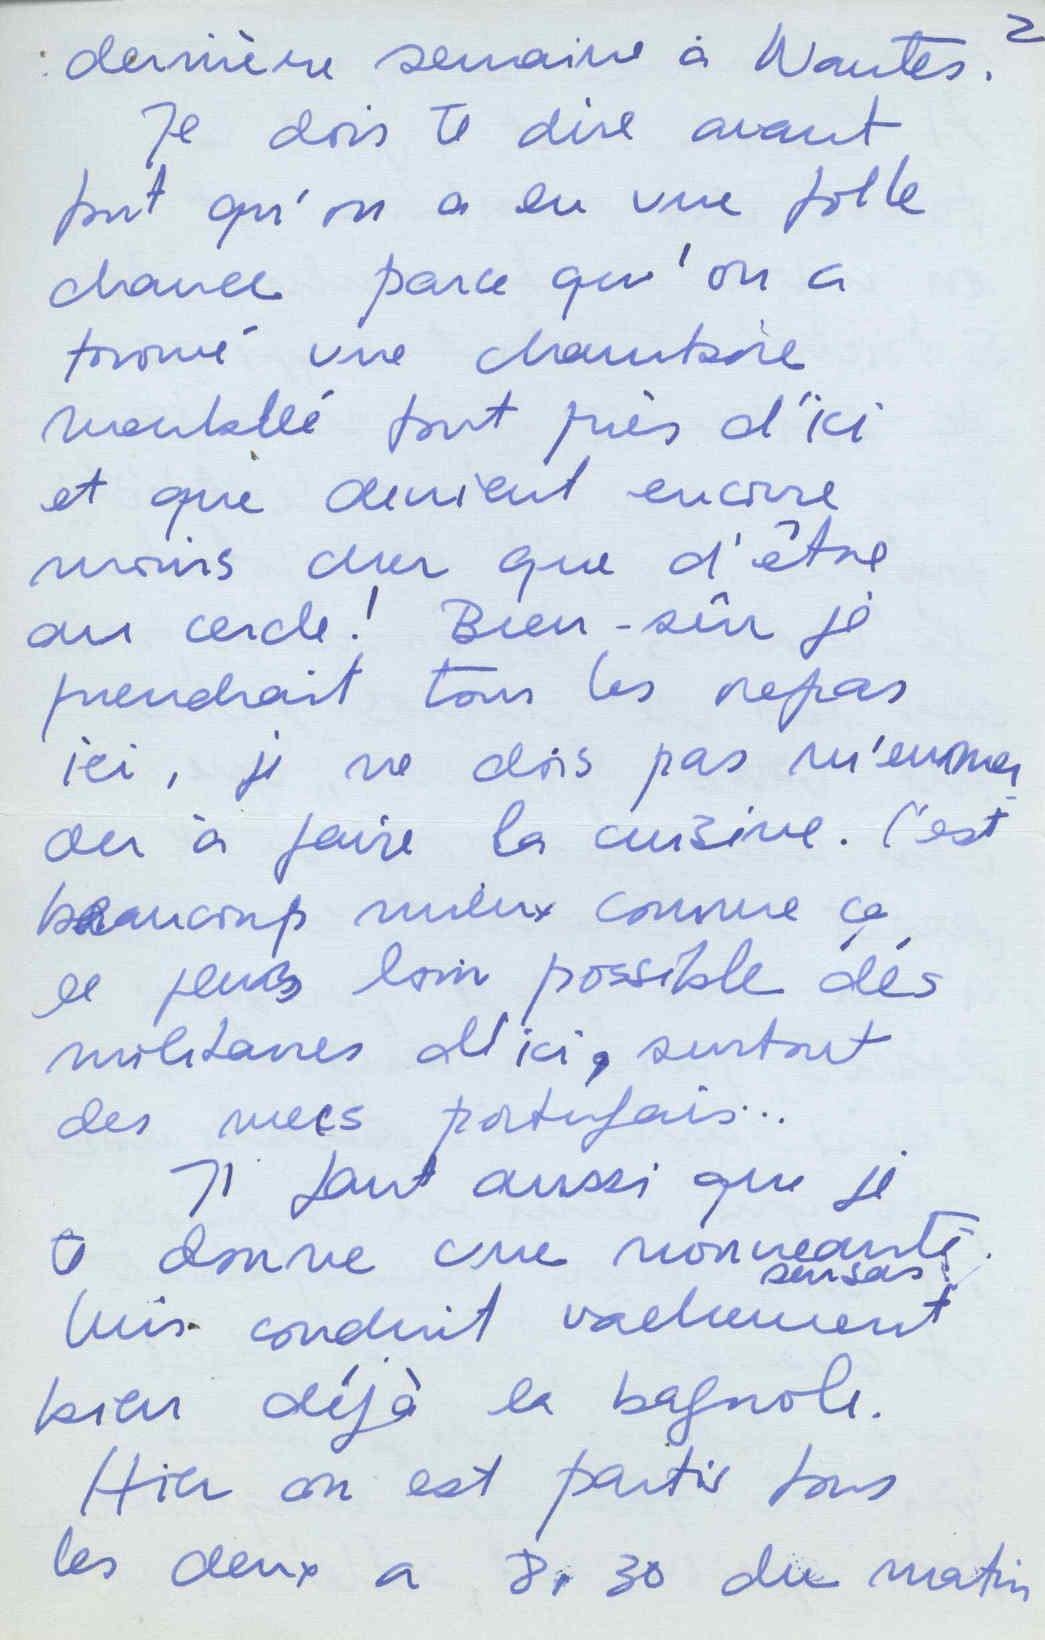 2
dernière semaine à Nantes.
Je dois te dire avant
tout qu'on a eu une folle
chance parce qu'on a
trouvé une chambre
meublé tout près d'ici
et que devient encore
moins cher que d'être
au cercle! Bien-sûr je
prendrait tous les repas
ici, je ne dois pas m'emmer
der à faire la cuisine. C'est
beaucoup mieux comme ça
le plus loin possible des
militaires d'ici, surtout
des mecs portugais...
Il faut aussi que je
te donne une nouveauté
sensas!
Luis conduit vachement
bien déjà la bagnole.
Hier on est partis tous
les deux a 8.30 du matin